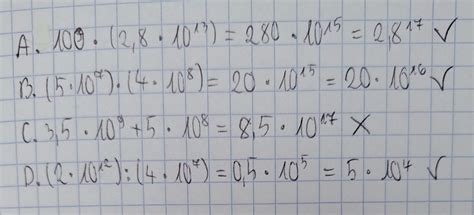 A. 100 · (2,8 · 10¹³) = 280 · 10¹⁵ = 2,8¹⁷ √
B. (5 · 10⁷) · (4 · 10⁸) = 20 · 10¹⁵ = 20 · 10¹⁶ √
C. 3,5 · 10⁹ + 5 · 10⁸ = 8,5 · 10¹⁷ X
D. (2 · 10¹²) : (4 · 10⁷) = 0,5 · 10⁵ = 5 · 10⁴ √